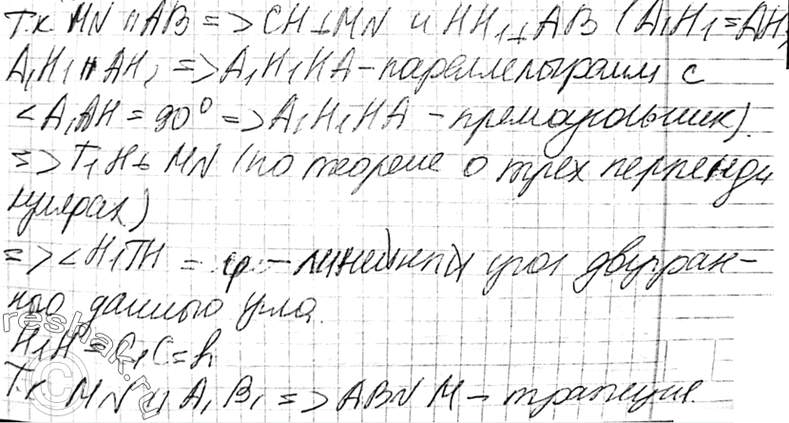 Т.к MN || AB => CH ⊥ MN и HH₁ ⊥ AB (A₁H₁ = AH,
A₁H₁ || AH, => A₁H₁HA – параллелограмм с
∠A₁AH = 90° => A₁H₁HA – прямоугольник).
=> T₁H ⊥ MN (по теореме о трех перпенди
кулярах)
=> ∠H₁TH = φ – линейный угол двугран-
ного данного угла.
H₁H = C₁C = h
Т.к MN || A₁B₁ => ABNM – трапеция.
reshak.ru